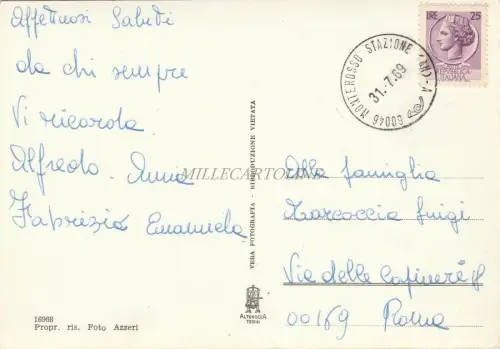 Affettuosi Saluti
da chi sempre
Vi ricorda.
Alfredo. Anna
Fabrizia Emanuela
LIRE 25
REPUBBLICA
ITALIANA
MONTEROSSO STAZIONE
31.7.69
94009
MILLECARTOLINE
VERA FOTOGRAFIA - RIPRODUZIONE VIETATA
ALTEROCCA
TERNI
16968
Propr. ris. Foto Azzeri
Alla famiglia
Marcoccia Luigi
Via delle
00169 Roma